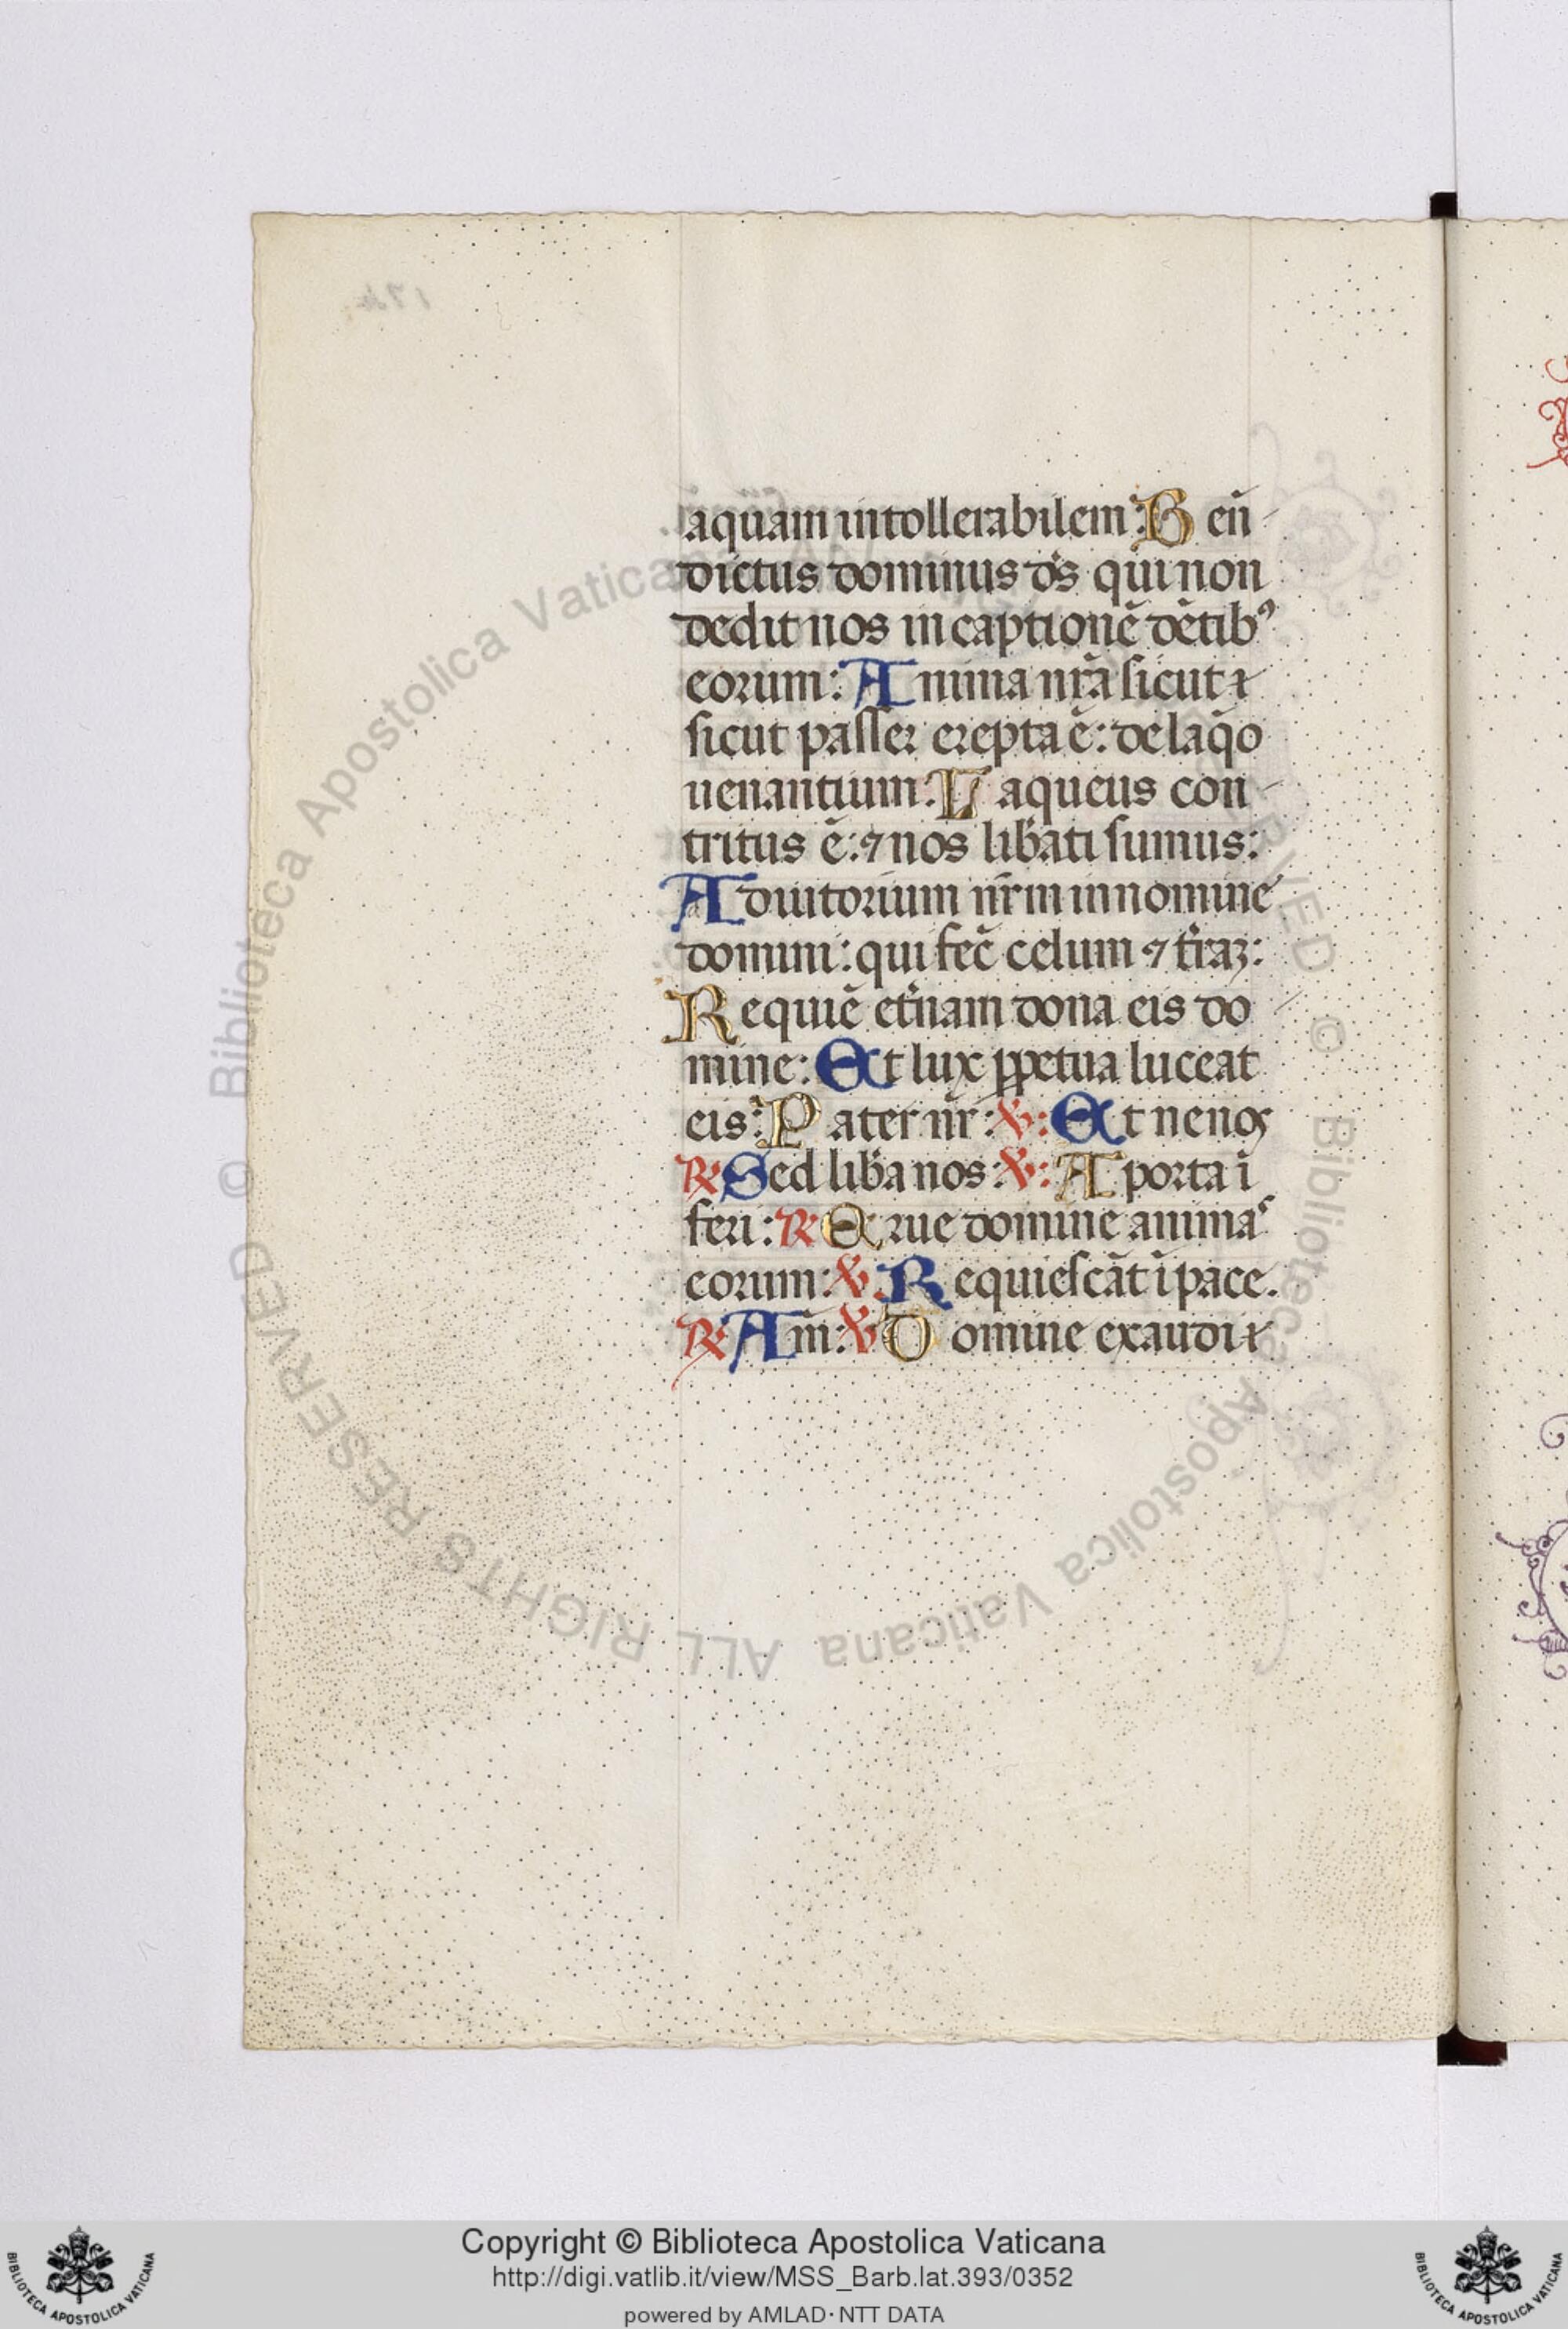 aquam intollerabilem: Ben̄
dictus dominus ds̄ qui non
dedit nos in captionē dētibꝰ
eorum: Anima nr̄a sicut
sicut passer erepta ē: de laq̄o
uenantium: Laqueus con
tritus ē: ⁊ nos lib̄ati sumus:
Adiutorium nr̄m in nomine
domini: qui fec̄ celum ⁊ t̄raꝫ:
Requiē et̄nam dona eis do
mine: Et lux ꝑpetua luceat
eis: Pater nr̄: ℣: Et ne nos
℟ Sed lib̄a nos: ℣: A porta ī
feri: ℟ Erue domine animas
eorum: ℣. Requiescāt ī pace.
℟ Am̄: ℣ Domine exaudi
© Biblioteca Apostolica Vaticana ALL RIGHTS RESERVED © Biblioteca Apostolica Vaticana ALL RIGHTS RESERVED
Copyright © Biblioteca Apostolica Vaticana
http://digi.vatlib.it/view/MSS_Barb.lat.393/0352
powered by AMLAD·NTT DATA
BIBLIOTECA APOSTOLICA VATICANA
BIBLIOTECA APOSTOLICA VATICANA